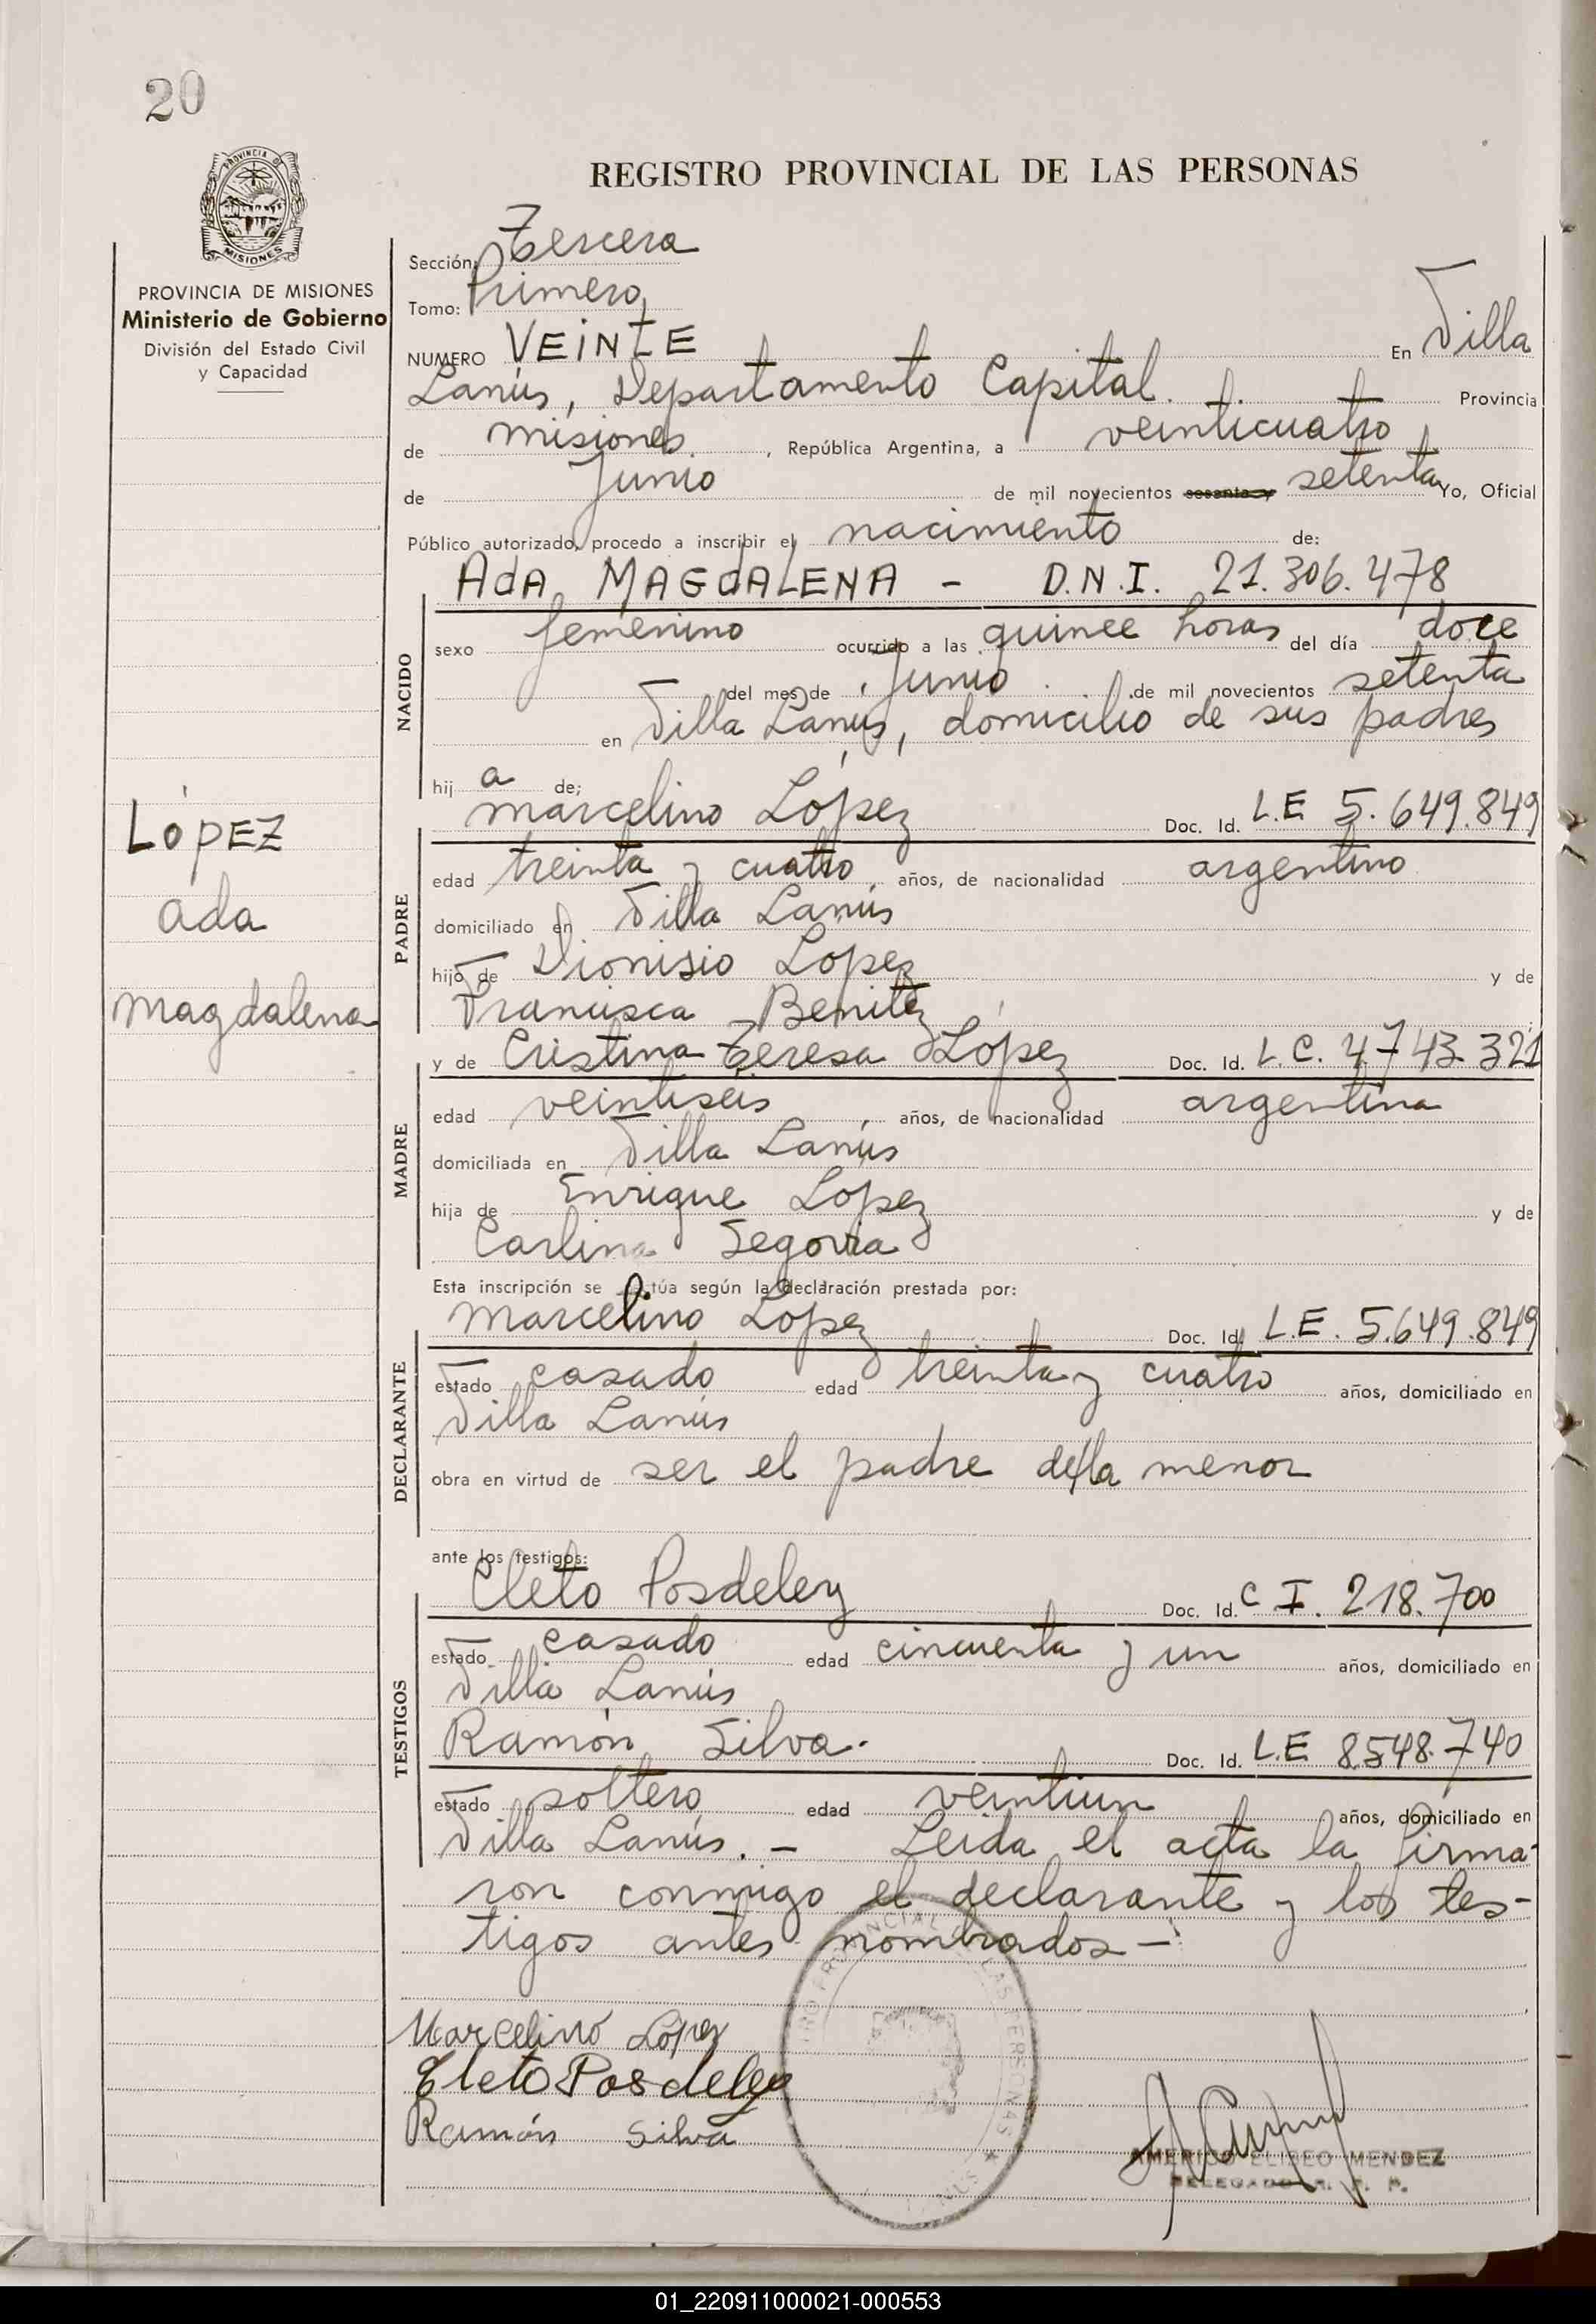 20
REGISTRO PROVINCIAL DE LAS PERSONAS
PROVINCIA DE MISIONES
Ministerio de Gobierno
División del Estado Civil
y Capacidad
López
Ada
Magdalena
Sección: Tercera
Tomo: Primero
NUMERO VEINTE En Villa
Lanús, Departamento Capital. Provincia
de misiones, República Argentina, a veinticuatro
de Junio de mil novecientos sesenta y setenta Yo, Oficial
Público autorizado, procedo a inscribir el nacimiento de:
AdA MAGdALENA - D.N.I. 21.306.478
NACIDO
sexo femenino ocurrido a las quince horas del día doce
del mes de Junio de mil novecientos setenta
en Villa Lanús, domicilio de sus padres
hij a de;
PADRE
marcelino López Doc. Id. L.E 5.649.849
edad treinta y cuatro años, de nacionalidad argentino
domiciliado en Villa Lanús
hijo de Dionisio Lopez y de
Francisca Benitez
MADRE
y de Cristina Teresa López Doc. Id. L.C. 4743.321
edad veintiseis años, de nacionalidad argentina
domiciliada en Villa Lanús
hija de Enrique Lopez y de
Carlina Segovia
Esta inscripción se túa según la declaración prestada por:
DECLARANTE
marcelino Lopez Doc. Id. L.E. 5.649.849
estado casado edad treinta y cuatro años, domiciliado en
Villa Lanús
obra en virtud de ser el padre de la menor
ante los testigos:
TESTIGOS
Cleto Posdeley Doc. Id. C I. 218.700
estado casado edad cincuenta y un años, domiciliado en
Villa Lanús
Ramón Silva. Doc. Id. L.E 8.548.740
estado soltero edad veintiun años, domiciliado en
Villa Lanús. - Leida el acta la firma-
ron conmigo el declarante y los tes-
tigos antes nombrados -
Marcelino López
Cleto Posdeley
Ramón Silva
AMERICO ELISEO MENDEZ
DELEGADO R. P. P.
01_220911000021-000553